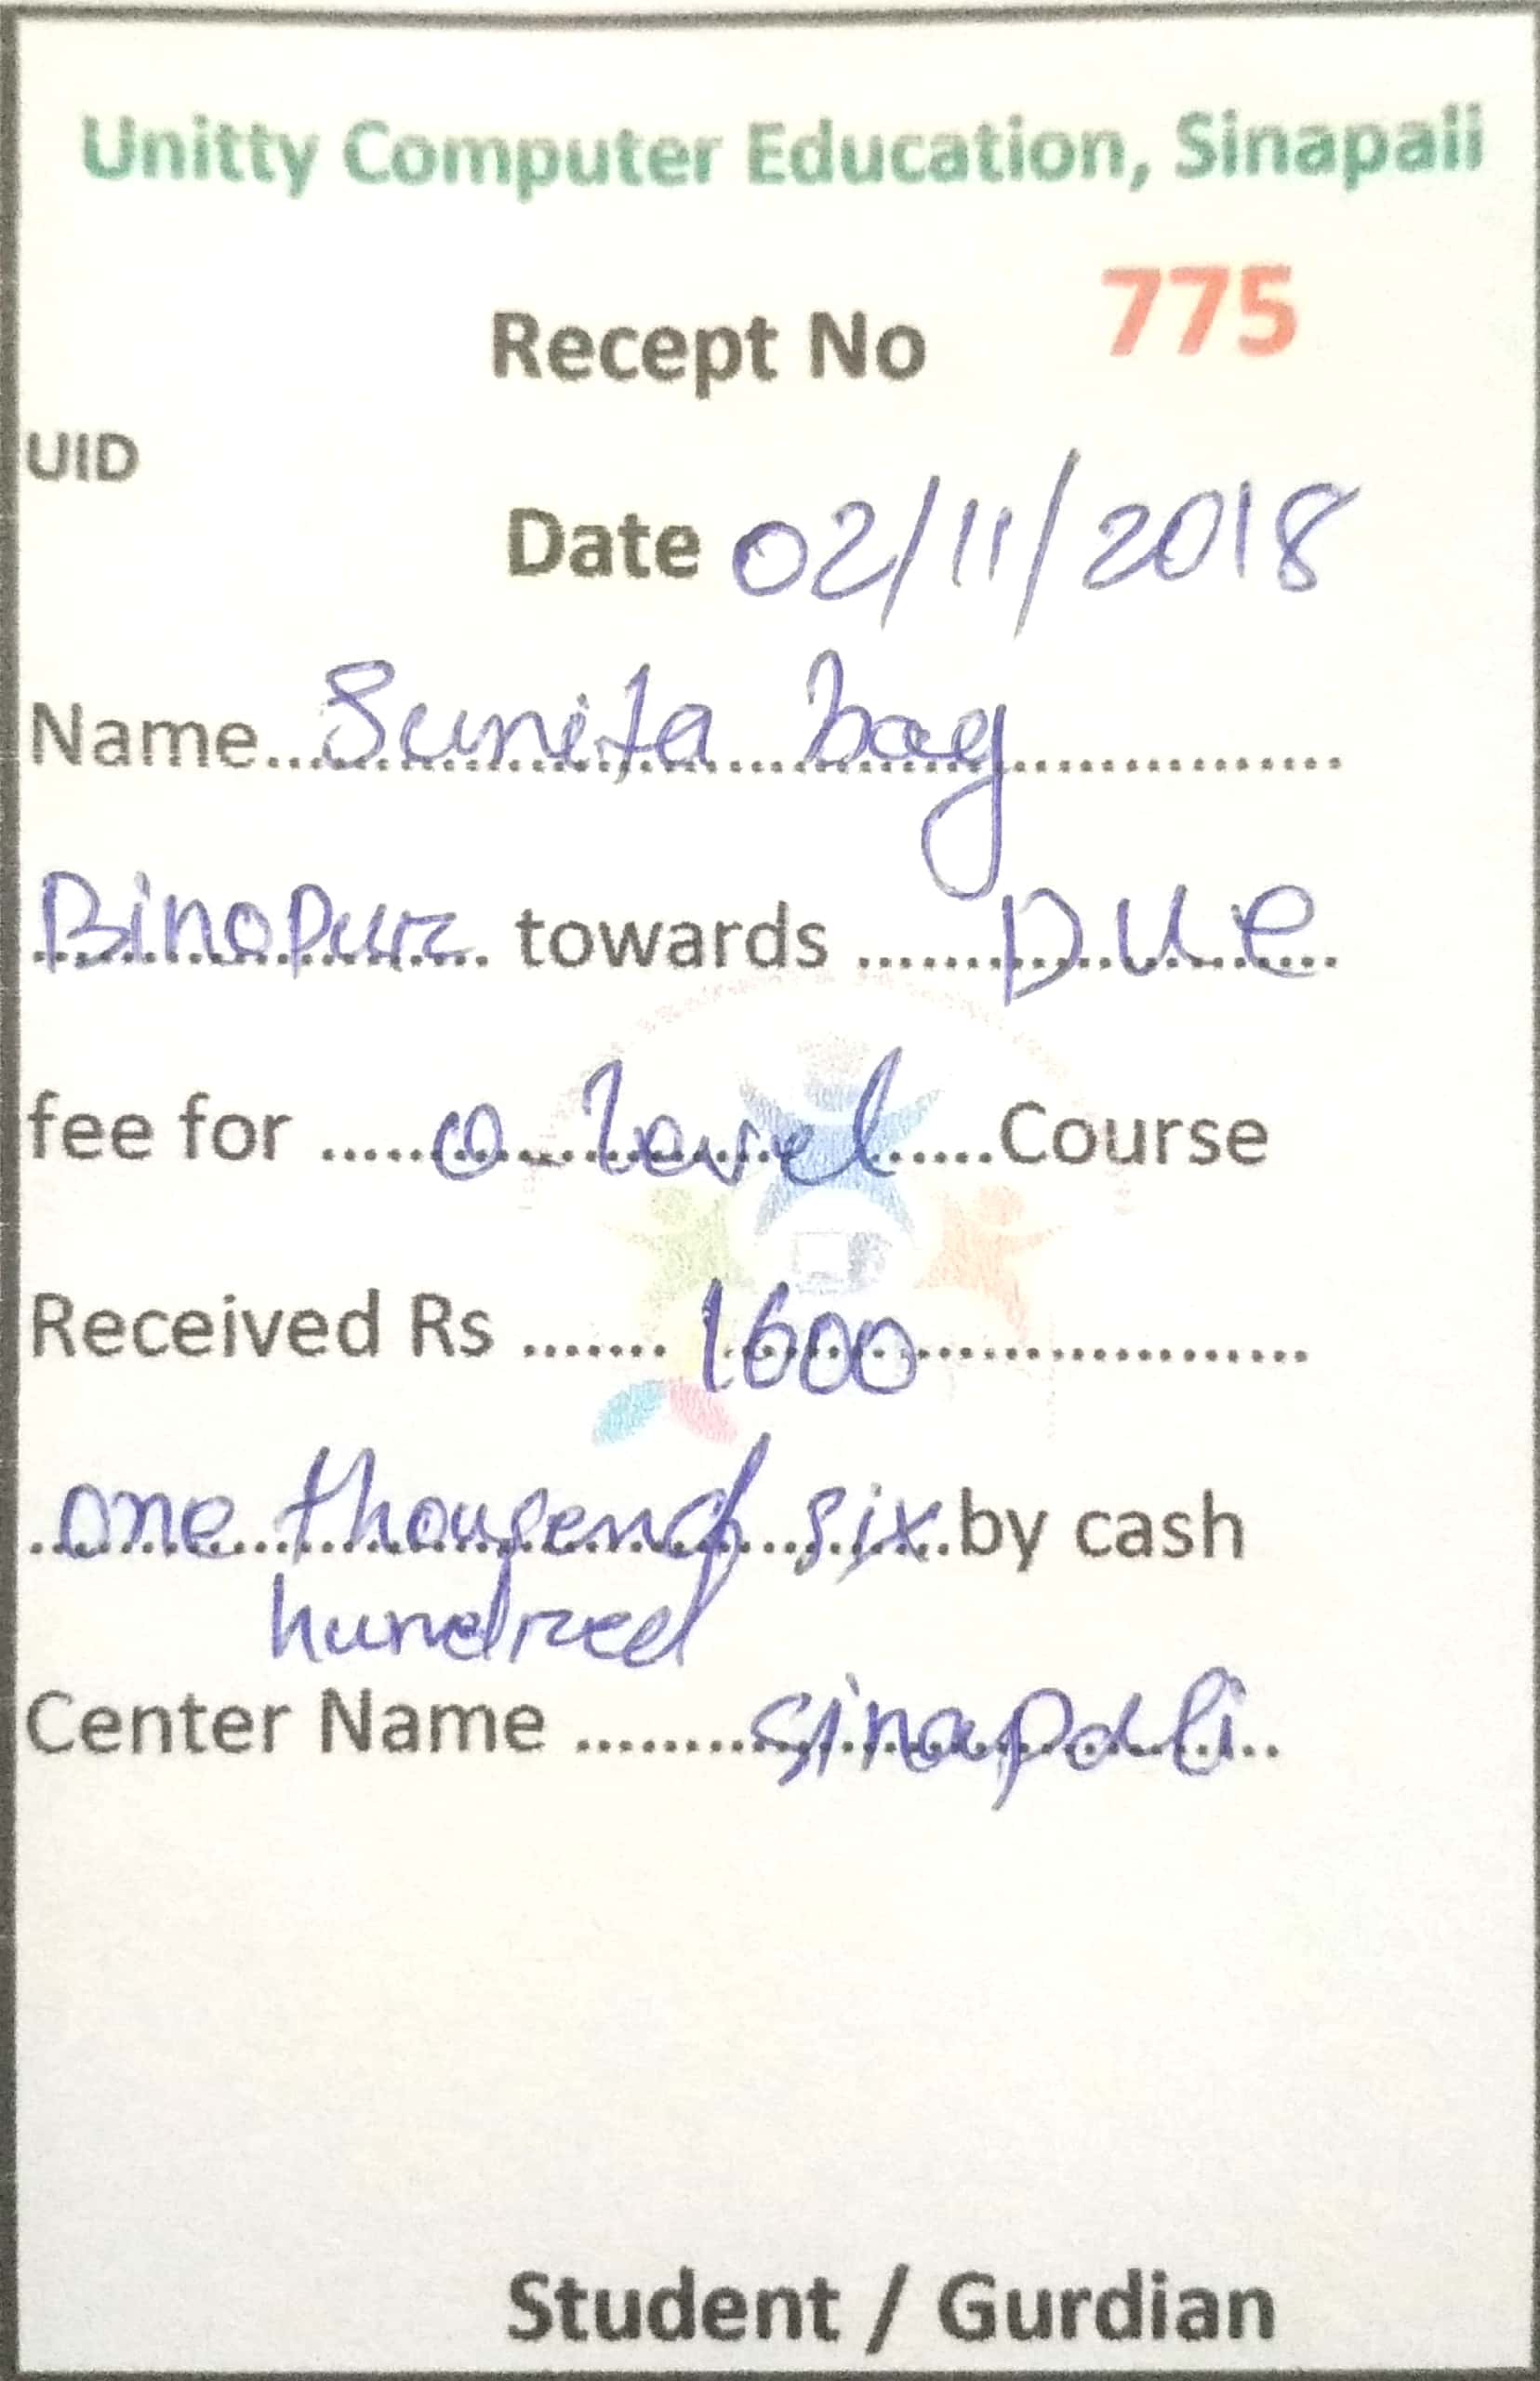 Unitty Computer Education, Sinapali
Recept No 775
UID
Date 02/11/2018
Name.......Sunita bag.......
Binapur towards .......Due.......
fee for .......O-level.......Course
Received Rs .......1600.......
one thousend six by cash
hundred
Center Name .......Sinapali.......
Student / Gurdian